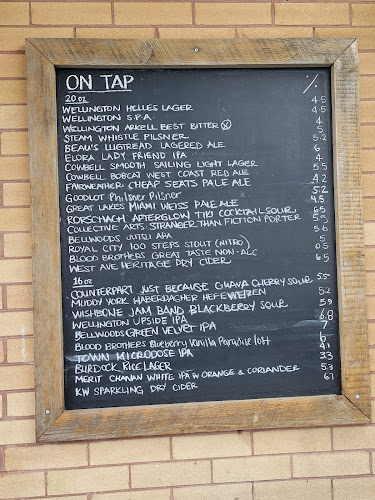 ON TAP %
20 oz
WELLINGTON HELLES LAGER 4.5
WELLINGTON S.P.A. 4.5
WELLINGTON ARKELL BEST BITTER 4
STEAM WHISTLE PILSNER 5
BEAU'S LUGTREAD LAGERED ALE 5.2
ELORA LADY FRIEND IPA 6
COWBELL SMOOTH SAILING LIGHT LAGER 4
COWBELL BOBCAT WEST COAST RED ALE 5.5
FAIRWEATHER CHEAP SEATS PALE ALE 4.2
GOODLOT Philsner Pilsner 5.2
GREAT LAKES MIAMI WEISS PALE ALE 4.5
RORSCHACH AFTERGLOW TIKI COCKTAIL SOUR 6.5
COLLECTIVE ARTS STRANGER THAN FICTION PORTER 5.5
BELLWOODS JUTSU APA 5.6
ROYAL CITY 100 STEPS STOUT (NITRO) 5
BLOOD BROTHERS GREAT TASTE NON-ALC 0.5
WEST AVE HERITAGE DRY CIDER 6.5
16 oz
COUNTERPART JUST BECAUSE GUAVA CHERRY SOUR 5.5
MUDDY YORK HABERDASHER HEFEWEIZEN 5.2
WISHBONE JAM BAND BLACKBERRY SOUR 5.9
WELLINGTON UPSIDE IPA 6.8
BELLWOODS GREEN VELVET IPA 7
BLOOD BROTHERS Blueberry Vanilla Paradise lost 6
TOWN MICRODOSE IPA
BURDOCK RICE LAGER
MERIT CHANAN WHITE IPA w ORANGE & CORIANDER 5.3
KW SPARKLING DRY CIDER 6.7